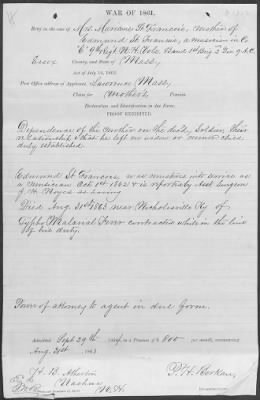 WAR OF 1861.
Brief in the case of Mrs. Marianne St Francois, mother of
Edmund St Francois, a musician in Co
"C" 9th Regt N. H. Vols. Band 1st Brig 2 Div 9 A. C.
Essex County, and State of Mass
Act of July 14, 1862.
Post Office address of Applicant, Lawrence Mass,
Claim for Mother's Pension
Declaration and Identification in due Form.
PROOF EXHIBITED.
Dependence of the mother on the dead soldier their
relationship & that he left no widow or minor child
duly established
Edmund St Francois was mustered into service as
a Musician Oct 1st 1862 & is reported by Asst Surgeon
J. H. Noyes as having
Died Aug 20th 1863 near Nicholasville Ky of
Typho Malarial Fever contracted while in the line
of his duty.
Power of attorney to agent in due form.
Admitted Sept 29th 186 , to a Pension of $ 8.00 per month, commencing
Aug 20th, 1863
H. B. Atherton
Nashua
N. H.